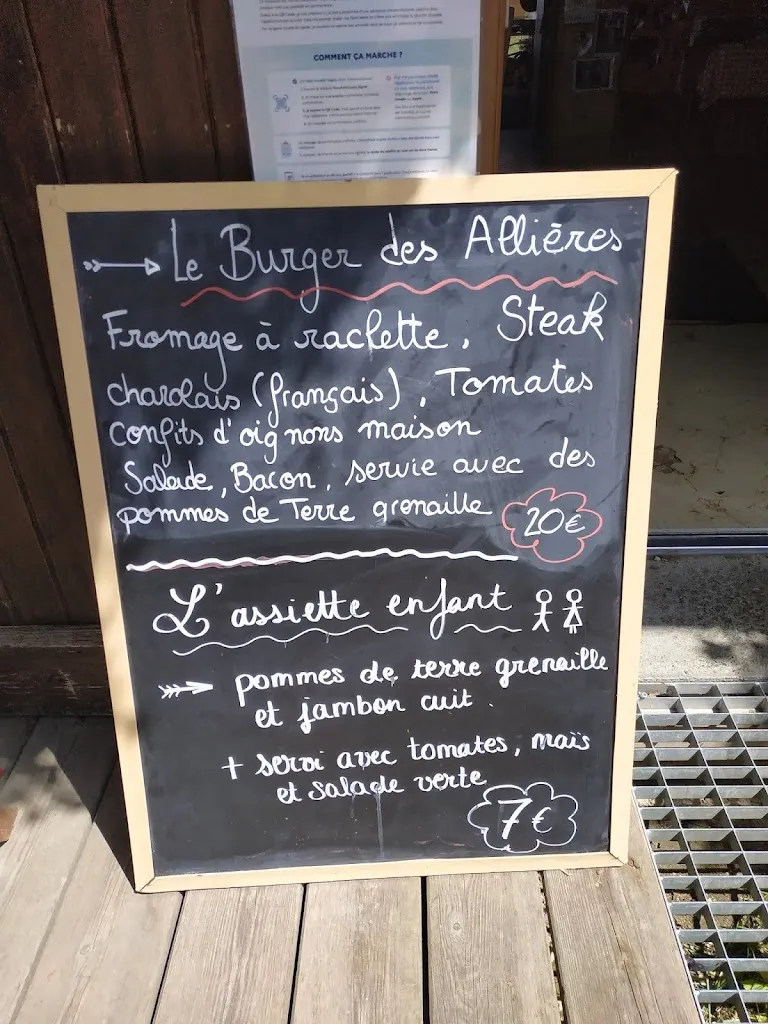 COMMENT ÇA MARCHE ?
Le Burger des Allières
Fromage à raclette, Steak
charolais (français), Tomates
confits d'oignons maison
Salade, Bacon, servie avec des
pommes de Terre grenaille
20€
L'assiette enfant
pommes de terre grenaille
et jambon cuit.
+ servi avec tomates, maïs
et salade verte
7€